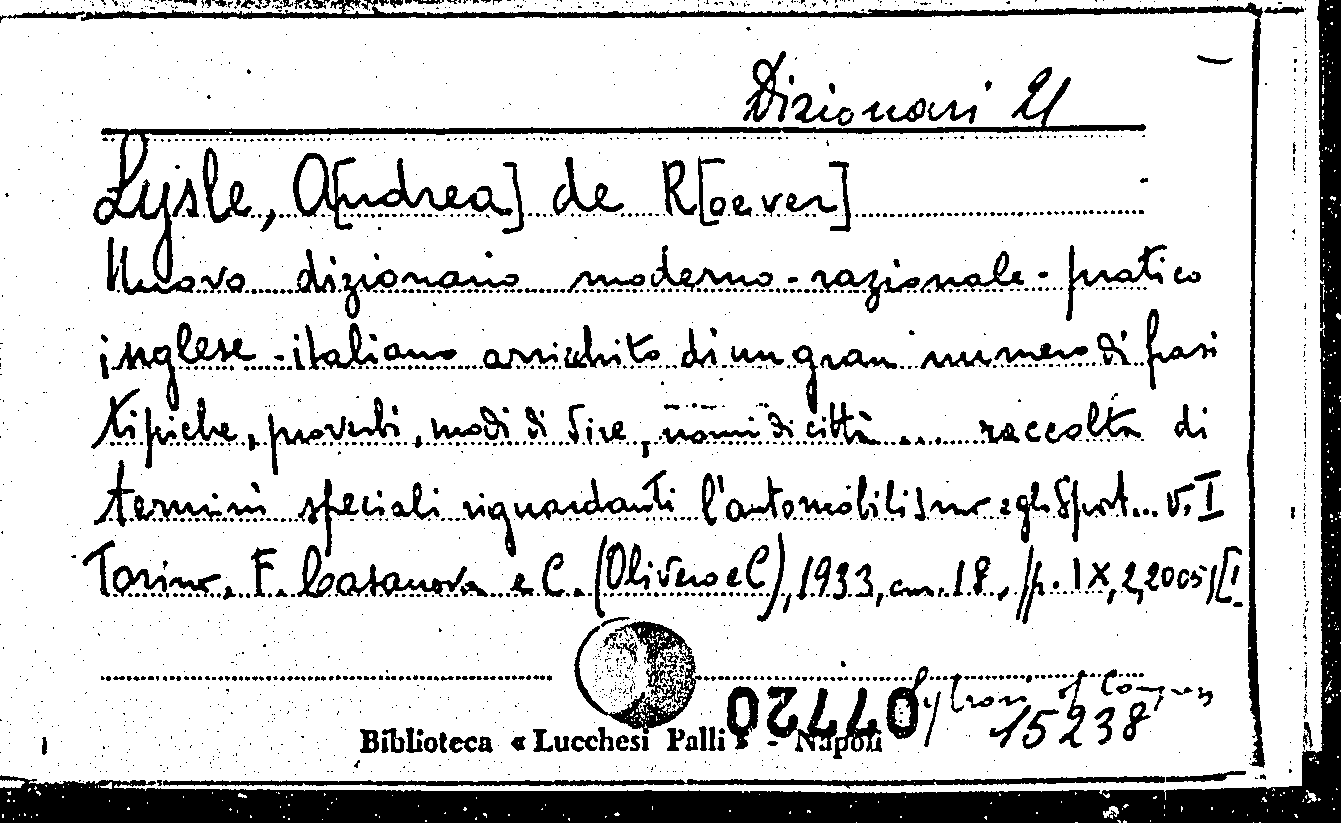 Dizionari 21
Lysle, A[ndrea] de R[oever]
Nuovo dizionario moderno-razionale-pratico
inglese-italiano arricchito di un gran numero di frasi
tipiche, proverbi, modi di dire, nomi di città ... raccolta di
termini speciali riguardanti l'automobilismo e gli Sport... v. I
Torino, F. Casanova e C. (Olivero e C), 1933, cm. 18, pp. IX,
of Congress
07720
15238
Biblioteca « Lucchesi Palli » - Napoli